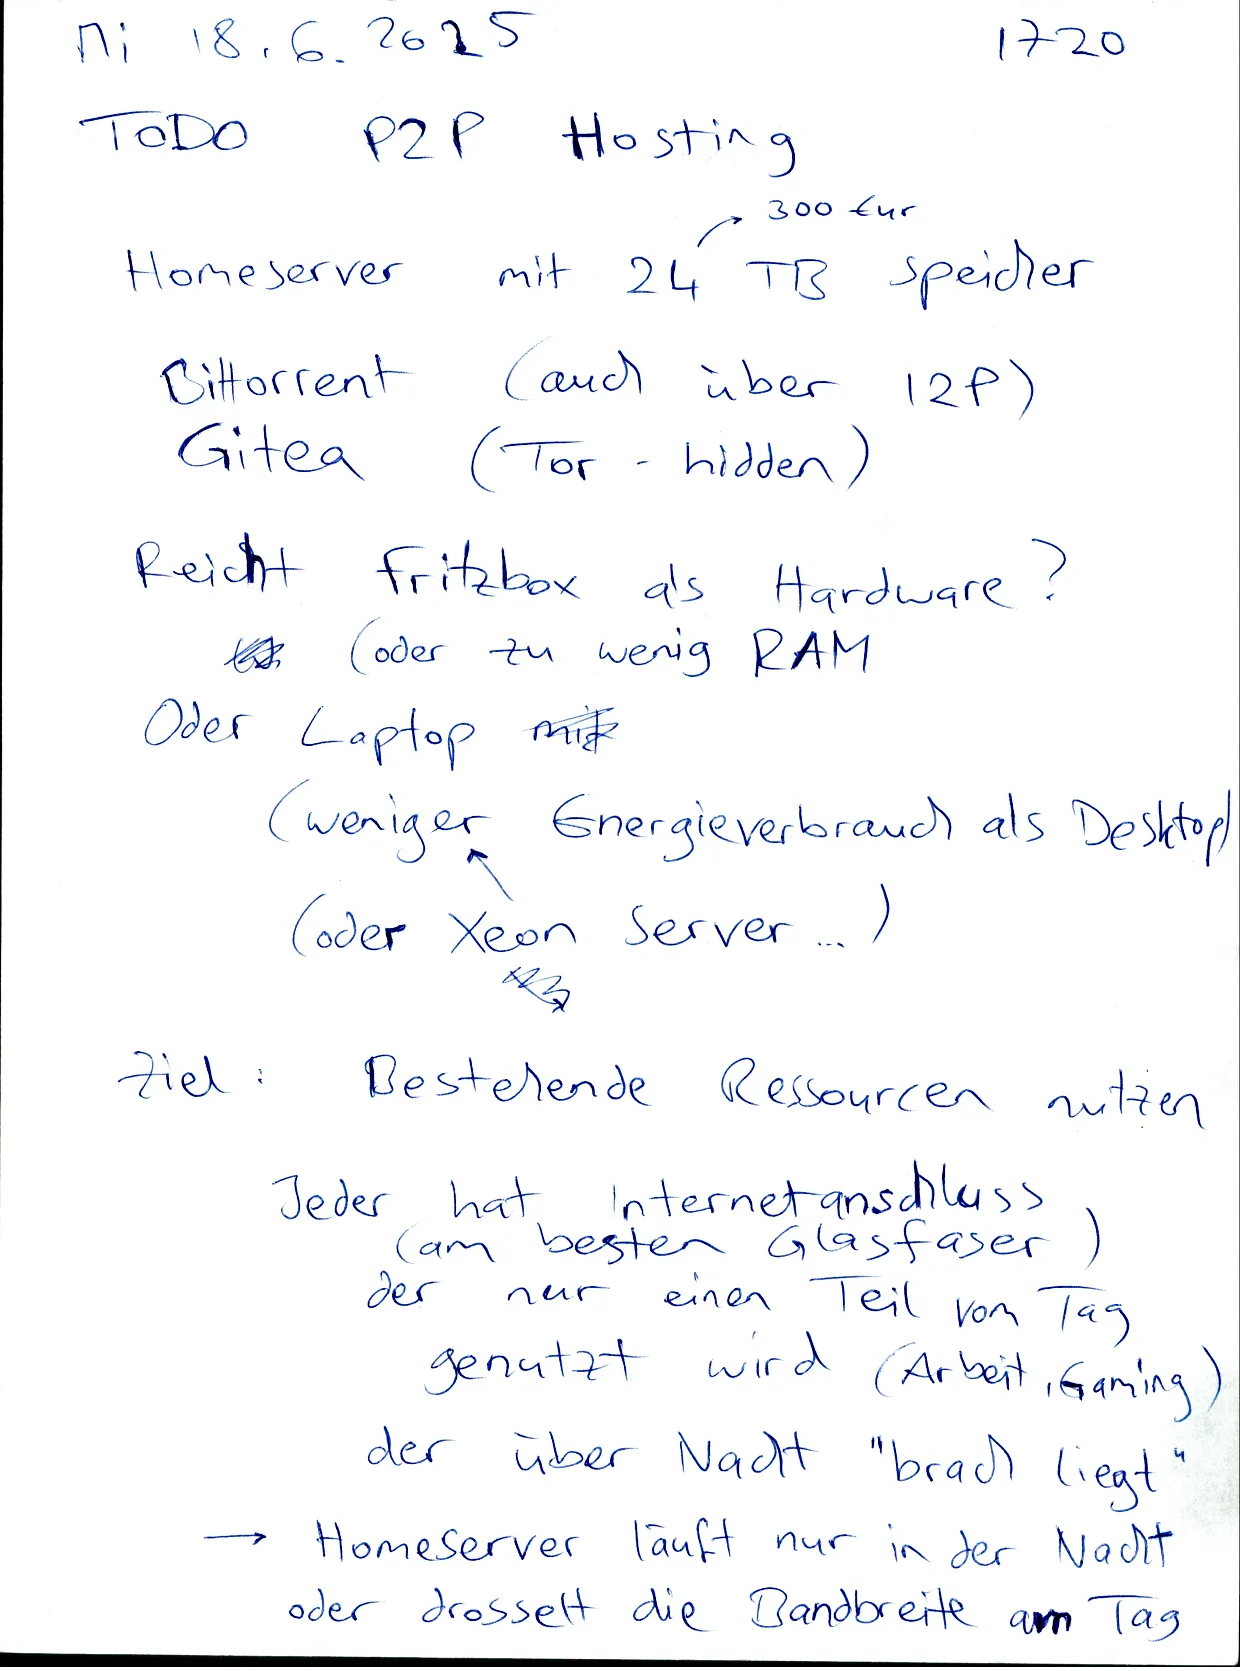 Mi 18.6.2025 1720
TODO P2P Hosting
300 Eur
Homeserver mit 24 TB Speicher
Bittorrent (auch über I2P)
Gitea (Tor - hidden)
Reicht Fritzbox als Hardware?
(oder zu wenig RAM
Oder Laptop
(weniger Energieverbrauch als Desktop)
(oder Xeon Server ... )
Ziel: Bestehende Ressourcen nutzen
Jeder hat Internetanschluss
(am besten Glasfaser)
der nur einen Teil vom Tag
genutzt wird (Arbeit, Gaming)
der über Nacht "brach liegt"
→ Homeserver läuft nur in der Nacht
oder drosselt die Bandbreite am Tag